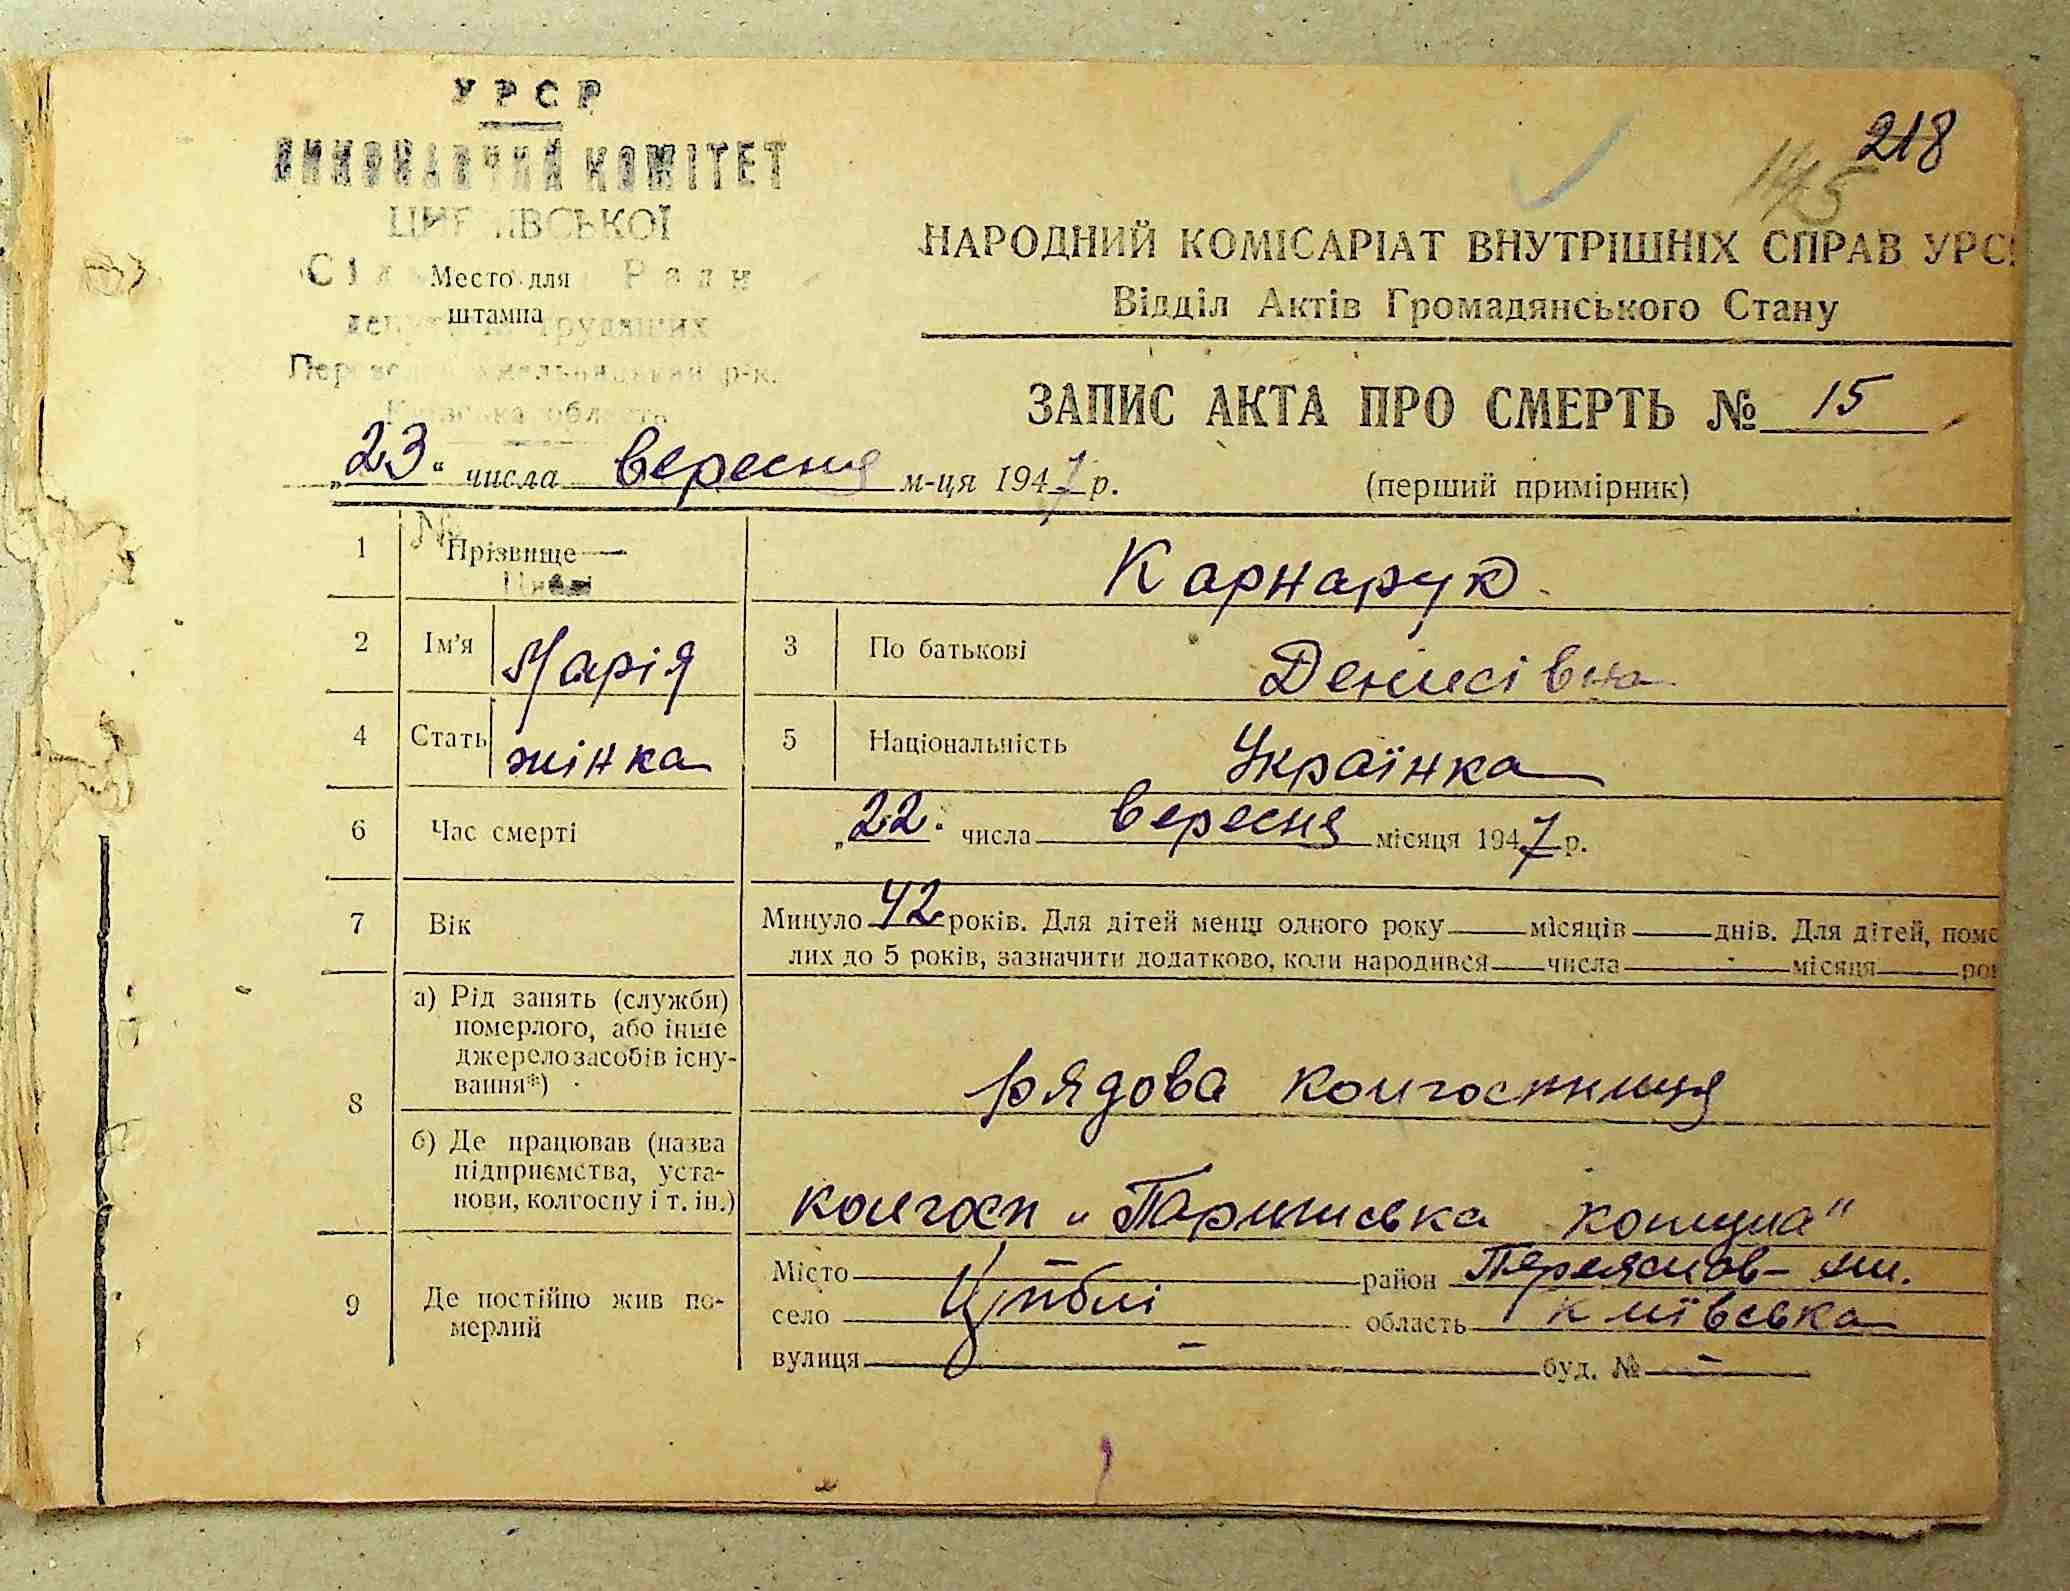 УРСР
ВИКОНАВЧИЙ КОМІТЕТ
218
145
НАРОДНИЙ КОМІСАРІАТ ВНУТРІШНІХ СПРАВ УРС
Місто для
штампа
трудящих
р-к.
Відділ Актів Громадянського Стану
ЗАПИС АКТА ПРО СМЕРТЬ № 15
„23“ числа вересня м-ця 1947 р.
(перший примірник)
1 Прізвище — Карнарук
2 Ім'я Марія 3 По батькові Денисівна
4 Стать жінка 5 Національність Українка
6 Час смерті „22“ числа вересня місяця 1947 р.
7 Вік Минуло 42 років. Для дітей менш одного року — місяців — днів. Для дітей, поме
лих до 5 років, зазначити додатково, коли народився — числа — місяця — ро
8 а) Рід занять (служби)
померлого, або інше
джерело засобів існу-
вання*)
рядова колгоспниця
б) Де працював (назва
підприємства, уста-
нови, колгоспу і т. ін.)
колгосп „Паризька комуна"
9 Де постійно жив по-
мерлий
Місто — район Переяслов-хм.
село Циблі область Київська
вулиця — буд. № —